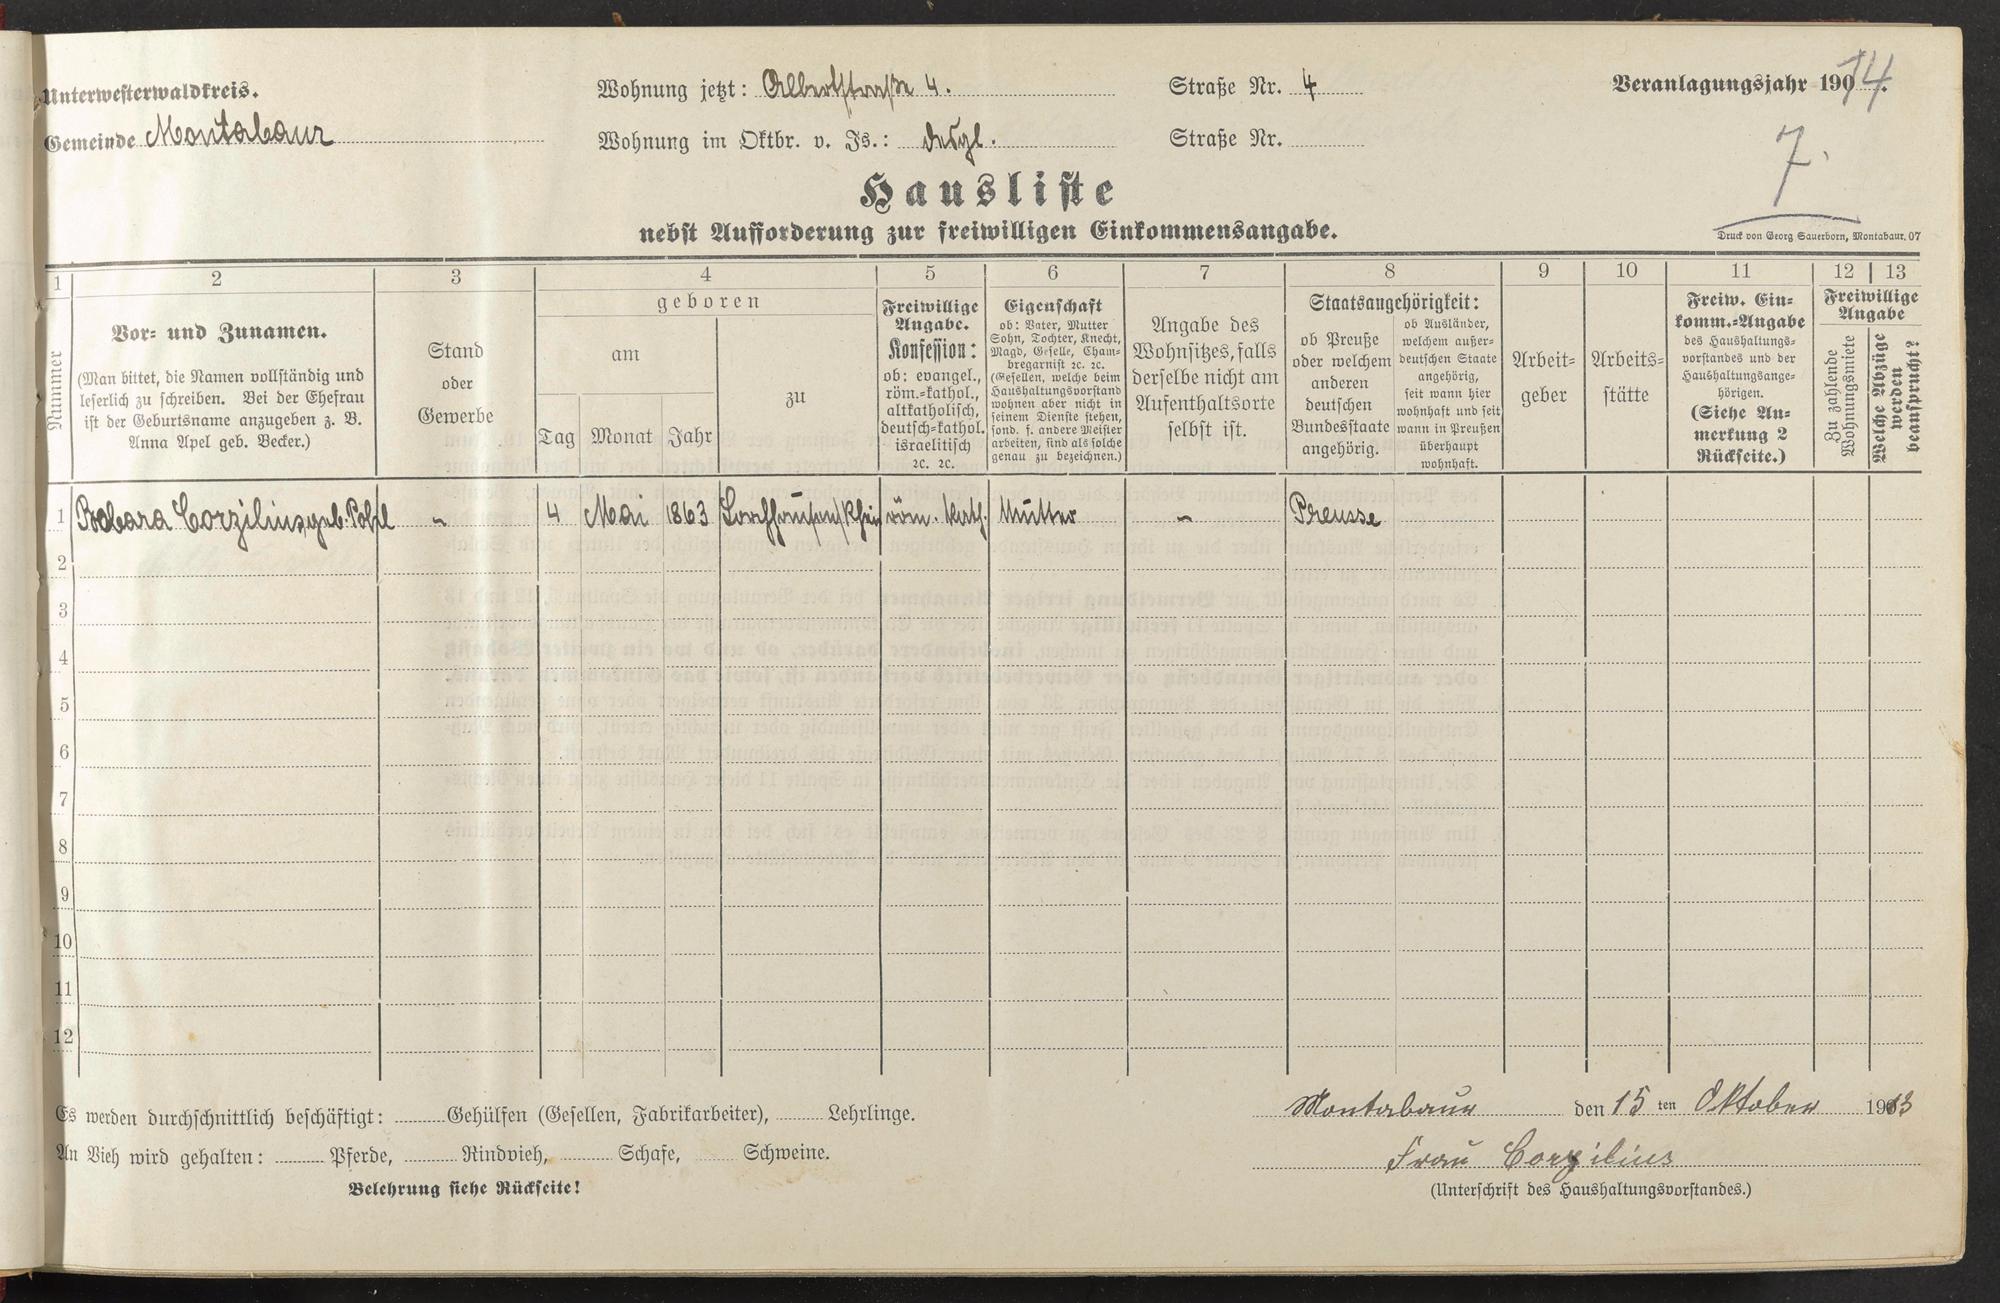 Unterwesterwaldkreis.
Gemeinde Montabaur
Wohnung jetzt: Albertstraße 4. Straße Nr. 4
Wohnung im Oktbr. v. Js.: desgl. Straße Nr.
Veranlagungsjahr 1914.
7.
Hausliste
nebst Aufforderung zur freiwilligen Einkommensangabe.
Druck von Georg Sauerborn, Montabaur. 07
1 2 3 4 5 6 7 8 9 10 11 12 13
Nummer
Vor- und Zunamen.
(Man bittet, die Namen vollständig und
leserlich zu schreiben. Bei der Ehefrau
ist der Geburtsname anzugeben z. B.
Anna Apel geb. Becker.)
Stand
oder
Gewerbe
geboren
am
Tag Monat Jahr
zu
Freiwillige
Angabe.
Konfession:
ob: evangel.,
röm.-kathol.,
altkatholisch,
deutsch-kathol.
israelitisch
2c. 2c.
Eigenschaft
ob: Vater, Mutter
Sohn, Tochter, Knecht,
Magd, Geselle, Cham-
bregarnist 2c. 2c.
(Gesellen, welche beim
Haushaltungsvorstand
wohnen aber nicht in
seinem Dienste stehen,
sond. f. andere Meister
arbeiten, sind als solche
genau zu bezeichnen.)
Angabe des
Wohnsitzes, falls
derselbe nicht am
Aufenthaltsorte
selbst ist.
Staatsangehörigkeit:
ob Preuße
oder welchem
anderen
deutschen
Bundesstaate
angehörig.
ob Ausländer,
welchem außer-
deutschen Staate
angehörig,
seit wann hier
wohnhaft und seit
wann in Preußen
überhaupt
wohnhaft.
Arbeit-
geber
Arbeits-
stätte
Freiw. Ein-
komm.-Angabe
des Haushaltungs-
vorstandes und der
Haushaltungsange-
hörigen.
(Siehe An-
merkung 2
Rückseite.)
Freiwillige
Angabe
Zu zahlende
Wohnungsmiete
Welche Abzüge
werden
beansprucht?
1 Barbara Corzilius, geb. Pohl - 4 Mai 1863 Lorchhausen/Rhein röm. kath. Mutter - Preusse
2
3
4
5
6
7
8
9
10
11
12
Es werden durchschnittlich beschäftigt: Gehülfen (Gesellen, Fabrikarbeiter), Lehrlinge.
An Vieh wird gehalten: Pferde, Rindvieh, Schafe, Schweine.
Belehrung siehe Rückseite!
Montabaur den 15 ten Oktober 1913
Frau Corzilius
(Unterschrift des Haushaltungsvorstandes.)